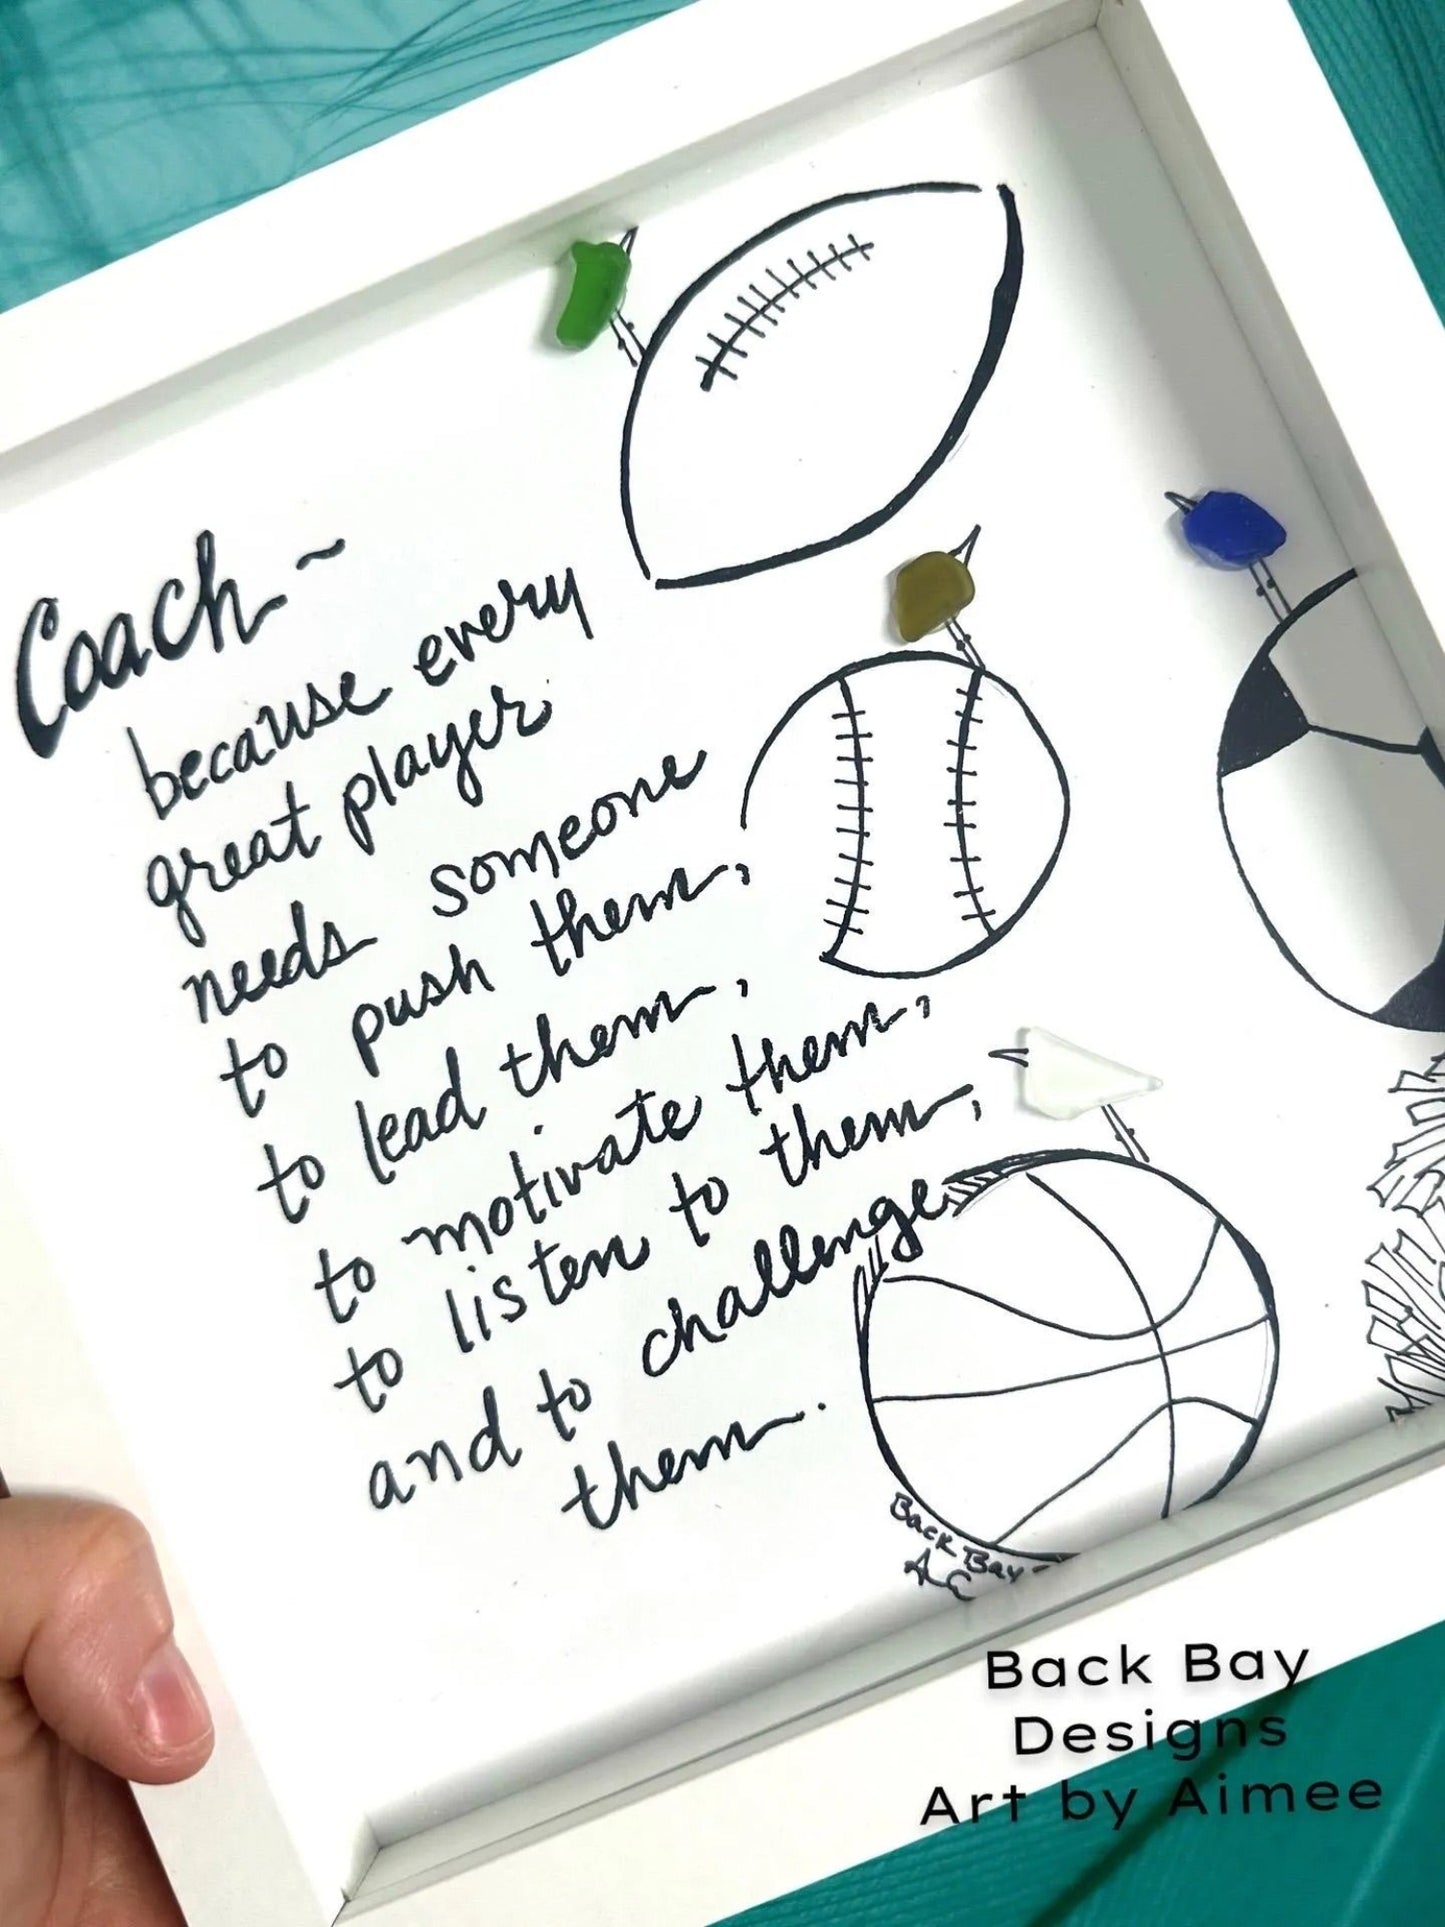 Coach ~
because every
great player
needs someone
to push them,
to lead them,
to motivate them,
to listen to them,
and to challenge
them.
Back Bay
AE
Back Bay
Designs
Art by Aimee